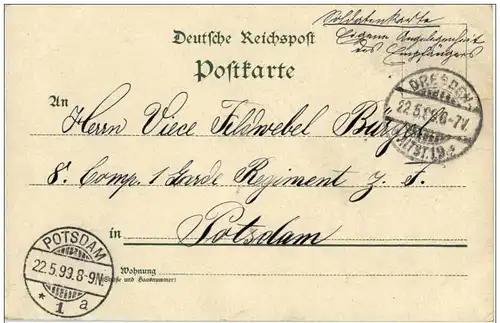 Soldatenkarte
Eigene Angelegenheit
des Empfängers
Deutsche Reichspost
Postkarte
DRESDEN
22.5.99.6-7V.
ALTST.19.*
An
Herrn Viece Feldwebel
8. Comp. 1 Garde Regiment z. F.
in Potsdam
POTSDAM
22.5.99.8-9N.
* 1 a
Wohnung
(Straße und Hausnummer)